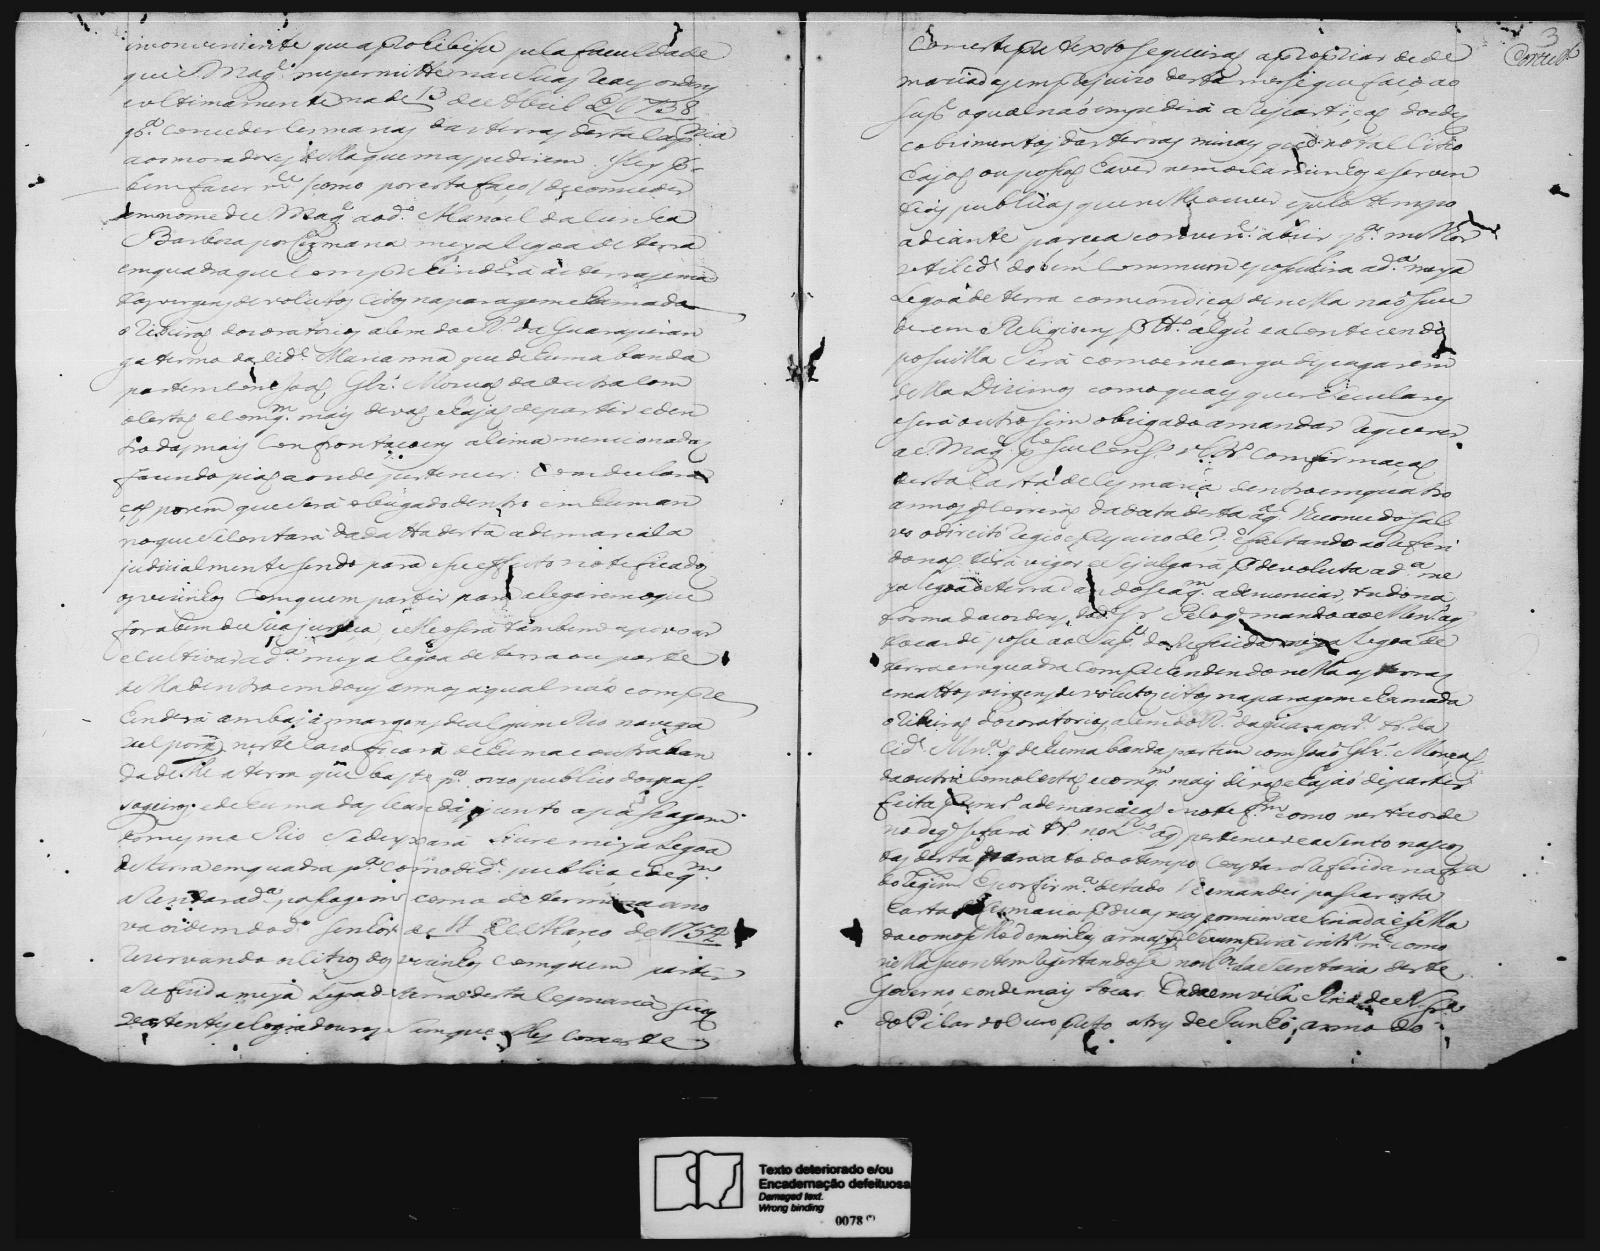 inconveniente que a prohibise pela faculdade
que S. Mag.e me permitte nas suas reaes ordens
e ultimamente na de 13 de Abril de 1738
p.a conceder sesmarias das terras desta Cap.nia
aos moradores della que mas pedirem: Hey p.r
bem fazer m.ce (como por esta faço) de conceder
em nome de S. Mag.e ao d.o Manoel da Cunha
Barboza por sesmaria meya legoa de terra
em quadra que comprehenderá as terras, e ma
tos virgens devolutos citos na paragem chamada
o Ribeirão dos oratorios alem do R.o da Guarapiran
ga termo da Cid.e Marianna que de huma banda
partem com João Glz.' da outra com
e com q.m mais deva, e haja de partir e den
tro das mais confrontaçoens asima mencionadas
fazendo pião aonde pertencer: Com declara
ção porem que será obrigado dentro em hum an
no que se contará da data desta a demarcala
judicialmente sendo para esse effeito notificados
os vizinhos com quem partir para alegarem o que
for a bem de sua justiça, e elle o será tambem a povoar
e cultivar a d.a meya legoa de terra ou parte
della dentro em dous annos a qual não compre
henderá ambas as margens de algum Rio navega
vel porq neste cazo ficará de huma e outra ban
da delle a terra que baste p.a o uzo publico dos pas
sageiros e de huma das bandas junto a passagem
do mesmo Rio se deyxará livre meya legoa
de terra em quadra p.a comodid.e publica, e de q.m
arendar a d.a passagem como determina a no
va ordem do d.o Senhor de 11 de Março de 1754
reservando os citios dos vizinhos com quem partir
a referida meya legoa de terra desta sesmaria suas
vertentes, e logradouros sem que elles com este
3
Com este pretexto se queirão apropriar de de
maziadas em prejuizo desta mercê que faço ao
sup.e o qual não impedirá a repartição dos des
cobrimentos das terras mineraes que no tal citio
hajão ou possão haver nem os caminhos e serven
tias publicas que nelle ouver e pelo tempo
adiante pareça conven.te abrir p.a melhor
utilid.e do bem commum e possuirá a d.a meya
legoa de terra com condição de nella não suce
derem Religioens por tt.o algu e acontecendo
possuilla será com o encargo de pagarem
della Dizimos como quaesquer seculares
e será outro sim obrigado a mandar requerer
a S. Mag.e p.lo seu Cons.o Ultr.o confirmação
desta carta de sesmaria dentro em quatro
annos q correrão da data desta a q.l lhe concedo sal
vo o direito regio, e prejuizo de 3.o, e faltando ao referi
do não terá vigor e se julgará por devoluta a d.a me
ya legoa de terra dandose a q.m a denunciar, tudo na
forma das ordens do d.o Sr. Pelo q mando ao Menistro a q
tocar dê posse ao sup.e da referida meya legoa de
terra em quadra comprehendendo nella as terras
e mattos virgens devolutos citos na paragem chamada
o Ribeirão dos oratorios, alem do R.o da Guarapir.a tr.o da
Cid.e Mn.a q de huma banda partem com João Glz.'
da outra com e com q.m mais deva e haja de partir
feita prim.ro a demarcação e notef.m como nesta orde
no de q se fará tr.o no L.o a q pertencer e asento nas cos
tas desta para a todo o tempo constar o referido na fr.a
do regim.to E por firm.a de tudo lhe mandei passar esta
Carta de Sesmaria por duas vias por mim asignada e sellada
do com o sello de minhas armas q se cumprirá intr.am.te como
nella se contem registandose nos L.os da Secretaria deste
Governo, e onde mais tocar. Dada em Vila Rica de N. Sr.a
do Pilar do Ouro preto a tres de Junho, anno do
Texto deteriorado e/ou
Encadernação defeituosa
Damaged text.
Wrong binding
0078 (*)